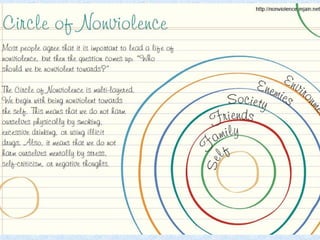 http://nonviolence.rejain.net
Circle of Nonviolence
Most people agree that it is important to lead a life of
nonviolence, but then the question comes up: "Who
should we be nonviolent towards?"
The Circle of Nonviolence is multi-layered.
We begin with being nonviolent towards
the self. This means that we do not harm
ourselves physically by smoking,
excessive drinking, or using illicit
drugs. Also, it means that we do not
harm ourselves mentally by stress,
self-criticism, or negative thoughts.
Environm
Enemies
Society
Friends
Family
Self